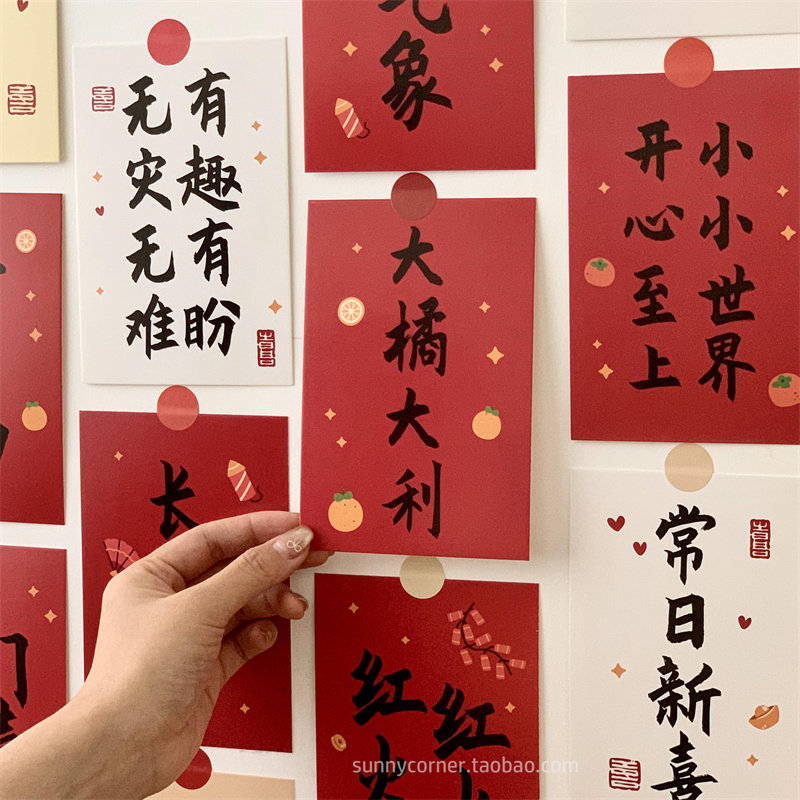 象
有趣有盼
无灾无难
喜
喜
大橘大利
小小世界
开心至上
长
红
红火
常日新喜
喜
喜
sunnycorner.taobao.com